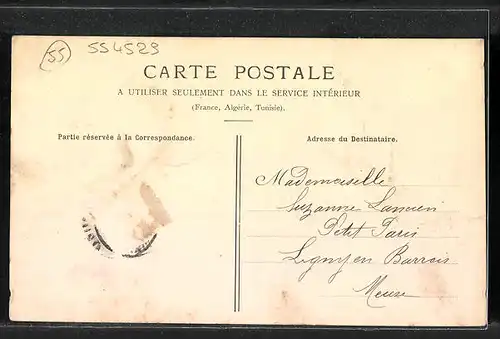 55
554529
CARTE POSTALE
A UTILISER SEULEMENT DANS LE SERVICE INTÉRIEUR
(France, Algérie, Tunisie).
Partie réservée à la Correspondance.
Adresse du Destinataire.
Mademoiselle
Suzanne
Petit Paris
Ligny en Barrois
Meuse